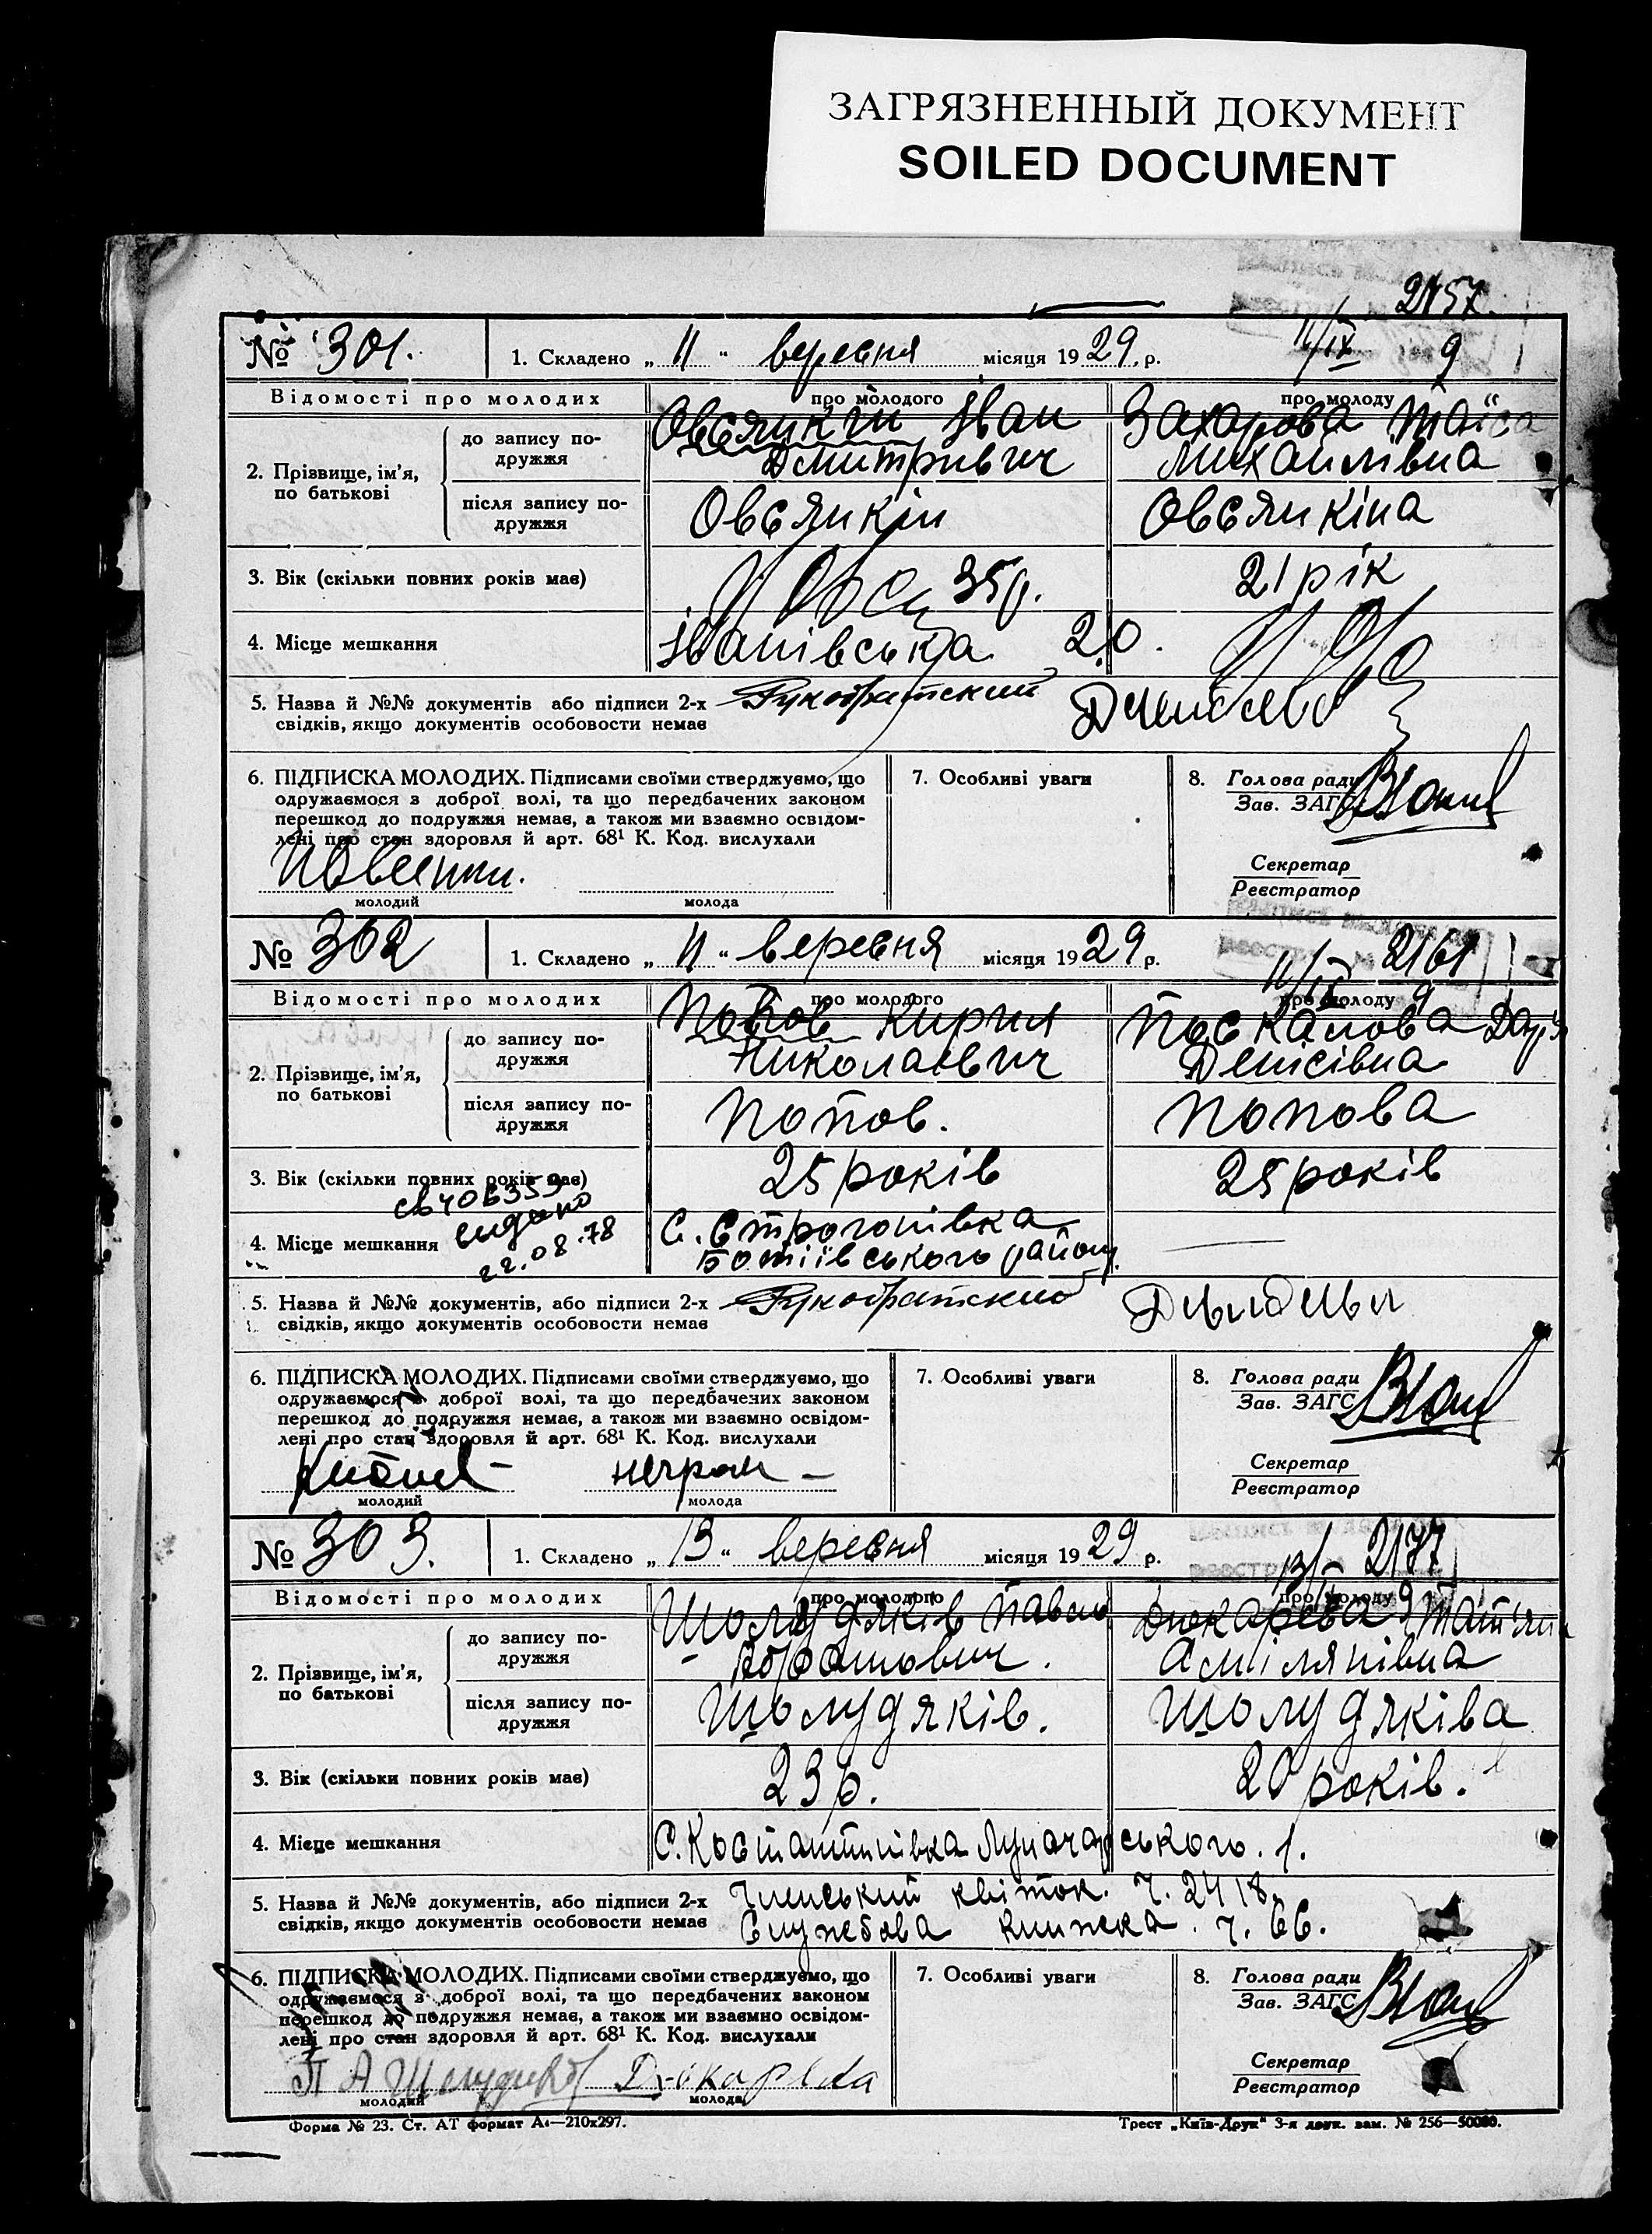 ЗАГРЯЗНЕННЫЙ ДОКУМЕНТ
SOILED DOCUMENT
2157.
№ 301. 1. Складено „ 11 " вересня місяця 1929. р. 11/IX 9
Відомості про молодих про молодого про молоду
2. Прізвище, ім'я, по батькові
до запису по-
дружжя
Овсянкін Іван Захарова Таїса
Дмитрович Михайлівна
після запису по-
дружжя
Овсянкін Овсянкіна
3. Вік (скільки повних років має) 35 р. 21 рік
4. Місце мешкання Іванівська 20.
5. Назва й №№ документів або підписи 2-х
свідків, якщо документів особовости немає
6. ПІДПИСКА МОЛОДИХ. Підписами своїми стверджуємо, що
одружаємося з доброї волі, та що передбачених законом
перешкод до подружжя немає, а також ми взаємно освідом-
лені про стан здоровля й арт. 68¹ К. Код. вислухали
молодий молода
7. Особливі уваги
8. Голова ради
Зав. ЗАГС
Секретар
Реєстратор
№ 302 1. Складено „ 11 " вересня місяця 1929 р. 11/IX 2161
9
Відомості про молодих про молодого про молоду
2. Прізвище, ім'я, по батькові
до запису по-
дружжя
Попов Кирил Дар'я
Николаєвич Денисівна
після запису по-
дружжя
Попов. Попова
3. Вік (скільки повних років має) 25 років 25 років
видано
22.08.78
4. Місце мешкання С. Строгонівка
Ботіївського району.
5. Назва й №№ документів, або підписи 2-х
свідків, якщо документів особовости немає
6. ПІДПИСКА МОЛОДИХ. Підписами своїми стверджуємо, що
одружаємося з доброї волі, та що передбачених законом
перешкод до подружжя немає, а також ми взаємно освідом-
лені про стан здоровля й арт. 68¹ К. Код. вислухали
неграм –
молодий молода
7. Особливі уваги
8. Голова ради
Зав. ЗАГС
Секретар
Реєстратор
№ 303. 1. Складено „ 13 " вересня місяця 1929 р. 2177
9
Відомості про молодих про молодого про молоду
2. Прізвище, ім'я, по батькові
до запису по-
дружжя
Шолудяків Павло Дюкарева
після запису по-
дружжя
Шолудяків. Шолудяківа
3. Вік (скільки повних років має) 23 р. 20 років.
4. Місце мешкання С. Костантинівка Луначарського. 1.
5. Назва й №№ документів, або підписи 2-х Членський квіток. ч. 2418.
свідків, якщо документів особовости немає Службова книжка. ч. 66.
6. ПІДПИСКА МОЛОДИХ. Підписами своїми стверджуємо, що
одружаємося з доброї волі, та що передбачених законом
перешкод до подружжя немає, а також ми взаємно освідом-
лені про стан здоровля й арт. 68¹ К. Код. вислухали
молодий молода
7. Особливі уваги
8. Голова ради
Зав. ЗАГС
Секретар
Реєстратор
Форма № 23. Ст. АТ формат А4—210x297. Трест „Київ-Друк" 3-я друк. зам. № 256—50000.